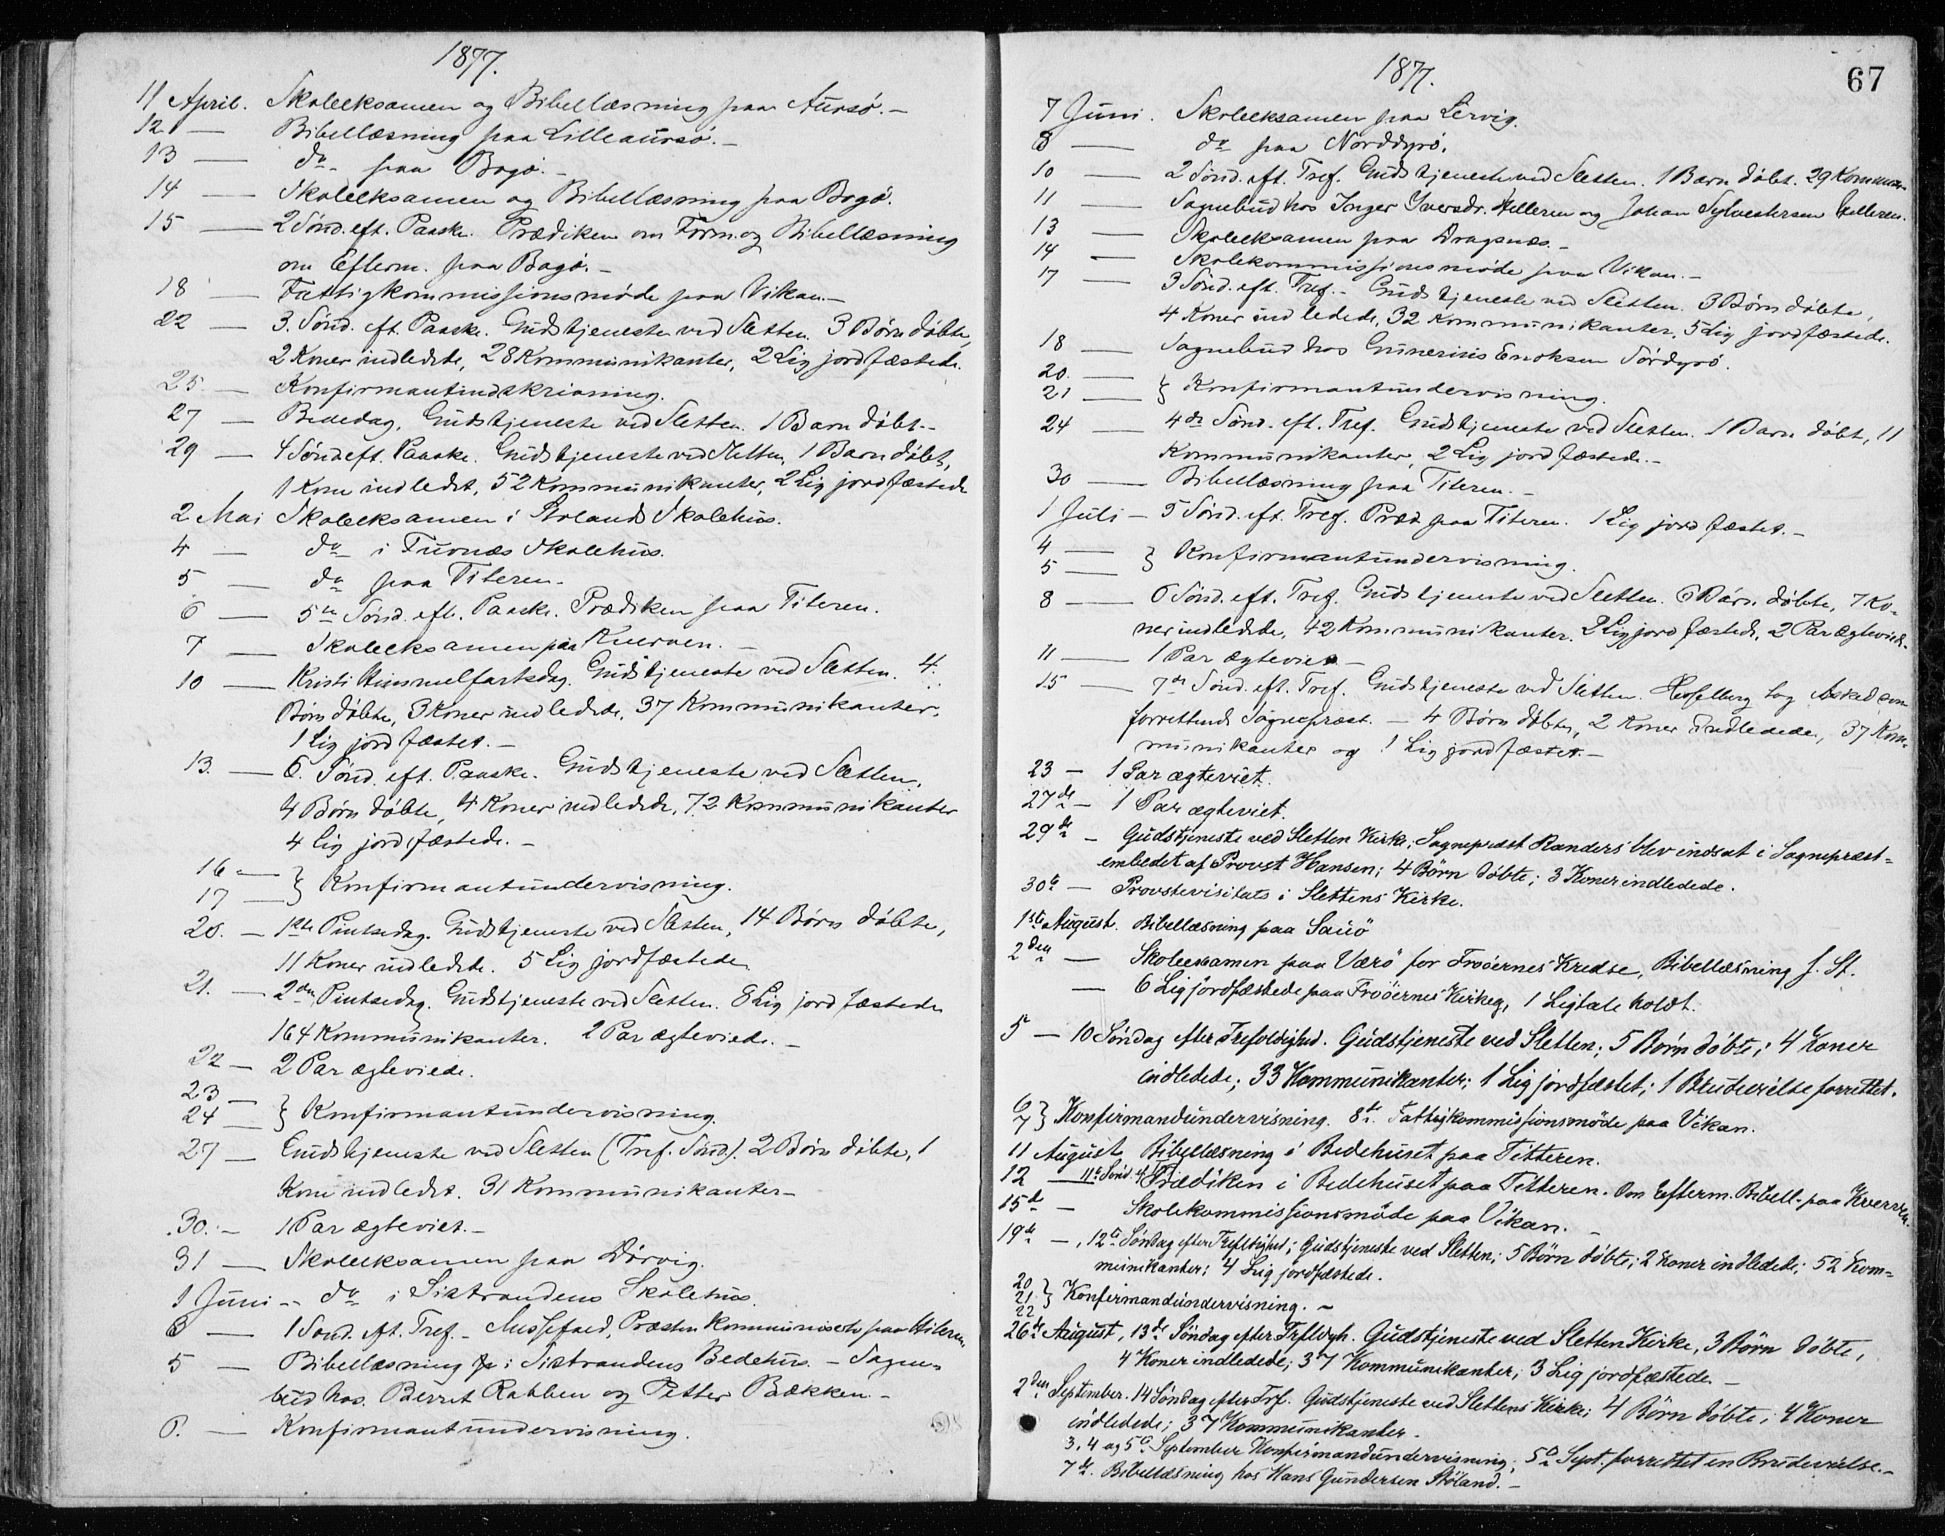 1877.
11 April. Skoleeksamen og Bibellæsning paa Aursö.-
12 — Bibellæsning paa Lilleaursö.-
13 — do paa Bogö.-
14 — Skoleeksamen og Bibellæsning paa Bogö.
15 — 2 Sönd. eft. Paaske. Prædiken om Form. og Bibellæsning
om Efterm. paa Bogö.-
18 — Fattigkommissionsmöde paa Vikan.-
22 — 3. Sönd. eft. Paaske. Gudstjeneste ved Sletten. 3 Börn döbte,
2 Koner indledte, 28 Kommunikanter, 2 Lig jordfæstede.
25 — Konfirmantindskrivning.
27 — Bededag. Gudstjeneste ved Sletten. 1 Barn döbt.-
29 — 4 Sönd eft. Paaske. Gudstjeneste ved Sletten, 1 Barn döbt,
1 Kone indledet, 52 Kommunikanter, 2 Lig jordfæstede
2 Mai Skoleeksamen i Stolands Skolehus.
4 — do i Tuvnæs Skolehus.
5 — do paa Titeren.
6 — 5te Sönd. eft. Paaske. Prædiken paa Titeren.
7 — Skoleeksamen paa Kverven.-
10 — Kristi Himmelfartsdag. Gudstjeneste ved Sletten. 4
Börn döbte, 3 Koner indledede, 37 Kommunikanter,
1 Lig jordfæstet.-
13. — 6. Sönd. eft. Paaske. Gudstjeneste ved Sletten,
4 Börn döbte, 4 Koner indledede, 72 Kommunikanter
4 Lig jordfæstede.-
16 —
17 — } Konfirmantundervisning.
20. — 1ste Pintsedag. Gudstjeneste ved Sletten, 14 Börn döbte,
11 Koner indledte. 5 Lig jordfæstede
21. — 2den Pintsedag. Gudstjeneste ved Sletten. 8 Lig jordfæstede
164 Kommunikanter. 2 Par ægteviede.-
22 — 2 Par ægteviede.
23 —
24 — } Konfirmantundervisning.
27 — Gudstjeneste ved Sletten (Tref. Sönd). 2 Börn döbte, 1
Kone indledet. 31 Kommunikanter-
30. - 1 Par ægteviet.-
31 — Skoleeksamen paa Dörvig.
1 Juni -- do i Sistrandens Skolehus.
3 — 1 Sönd. eft. Tref.- Messefald, Præsten
5 — Bibellæsning i Sistrandens Bedehus. - Sogne-
bud hos Berret Rabben og Petter Bækken.-
6. — Konfirmantundervisning.
1877. 67
7 Juni. Skoleeksamen paa Lervig.
8 — do paa Norddyrö.
10 — 2 Sönd. eft. Tref. Gudstjeneste ved Sletten. 1 Barn döbt. 29 Kommun.
11 — Sognebud hos Inger Iversdr. Helleren og Johan Sylvestersen Helleren.
13 — Skoleeksamen paa Dragsnæs.-
14 — Skolekommissionsmöde paa Vikan.-
17 — 3 Sönd. eft. Tref.- Gudstjeneste ved Sletten. 3 Börn döbte,
4 Koner indledede, 32 Kommunikanter, 5 Lig jordfæstede.
18 — Sognebud hos Gunerius Enoksen Sördyrö.
20. —
21 — } Konfirmantundervisning.
24 — 4de Sönd. eft. Tref. Gudstjeneste ved Sletten. 1 Barn döbt, 11
Kommunikanter, 2 Lig jordfæstede.-
30 — Bibellæsning paa Titeren.-
1 Juli — 5 Sönd. eft. Tref. Præd. paa Titeren. 1 Lig jordfæstet.-
4 —
5 — } Konfirmantundervisning.
8 — 6 Sönd. eft. Tref. Gudstjeneste ved Sletten. 6 Börn döbte, 7 Ko-
ner indledede, 42 Kommunikanter. 2 Lig jordfæstede, 2 Par ægteviede.
11 — 1 Par ægteviet-
15 — 7de Sönd. eft. Tref. Gudstjeneste ved Sletten. Hesselberg tog Avsked som
forrettende Sognepræst. — 4 Börn döbte, 2 Koner indledede, 37 Kom-
munikanter og 1 Lig jordfæstet.-
23 — 1 Par ægteviet.
27de — 1 Par ægteviet.
29de — Gudstjeneste ved Sletten Kirke; Sognepræst Randers blev indsat i Sognepræst-
embedet af Provst Hansen; 4 Börn döbte; 3 Koner indledede.
30te — Provstevisitats i Slettens Kirke.
1ste August. Bibellæsning paa Sauö
2den — Skoleexamen paa Værö for Froöernes Kredse, Bibellæsning s. St.
— 6 Lig jordfæstede paa Froöernes Kirkeg, 1 Ligtale holdt.
5 — 10 Söndag efter Trefoldighed. Gudstjeneste ved Sletten; 5 Börn döbte; 4 Koner
indledede; 33 Kommunikanter; 1 Lig jordfæstet; 1 Brudevielse forrettet.
6
7 } Konfirmandundervisning. 8de Fattigkommissionsmöde paa Vikan.
11 August Bibellæsning i Bedehuset paa Titteren.
12 — 11te Sönd. Prædiken i Bedehuset paa Titteren. Om Efterm. Bibell. paa Kverven.
15de — Skolekommissionsmöde paa Vikan.-
19de —, 12te Söndag efter Treflighed; Gudstjeneste ved Sletten; 5 Börn döbte; 2 Koner indledede; 52 Kom-
munikanter; 4 Lig jordfæstede.
20
21 } Konfirmandundervisning. —
22
26de August, 13de Söndag efter Trfldgh. Gudstjeneste ved Sletten Kirke, 3 Börn döbte,
4 Koner indledede; 37 Kommunikanter; 3 Lig jordfæstede.—
2den September. 14 Söndag efter Trf. Gudstjeneste ved Slettens Kirke; 4 Börn döbte; 4 Koner
indledede; 37 Kommunikanter.
3, 4 og 5te September Konfirmandundervisning; 5te Sept. forrettet en Brudevielse.-
7de Bibellæsning hos Hans Gundersen Stöland.-